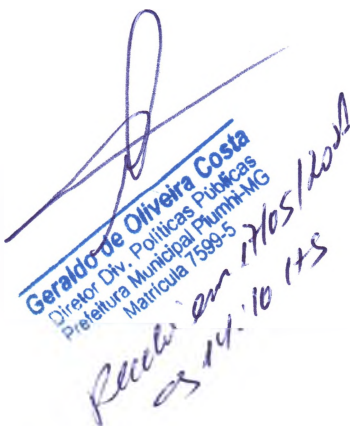 Geraldo de Oliveira Costa
Diretor Div. Políticas Públicas
Prefeitura Municipal Piumhi-MG
Matrícula 7599-5
Recebi em 17/05/2021
as 14:10 HS